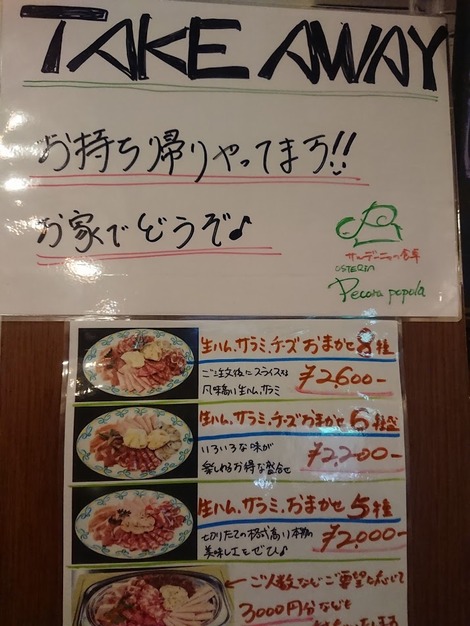 TAKE AWAY
お持ち帰りやってまう!!
お家でどうぞ♪
サルデーニャの食卓
OSTERIA
Pecora popola
生ハム、サラミ、チーズおまかせ8種
ご注文後にスライスする
風味高い生ハム、サラミ
¥2,600-
生ハム、サラミ、チーズおまかせ6種盛
いろいろな味が
楽しめるお得な盛合せ
¥2,200-
生ハム、サラミ、おまかせ5種
切りたての格式高い本物の
美味しさをぜひ♪
¥2,000-
←ご人数などご要望に応じて
3000円分なども